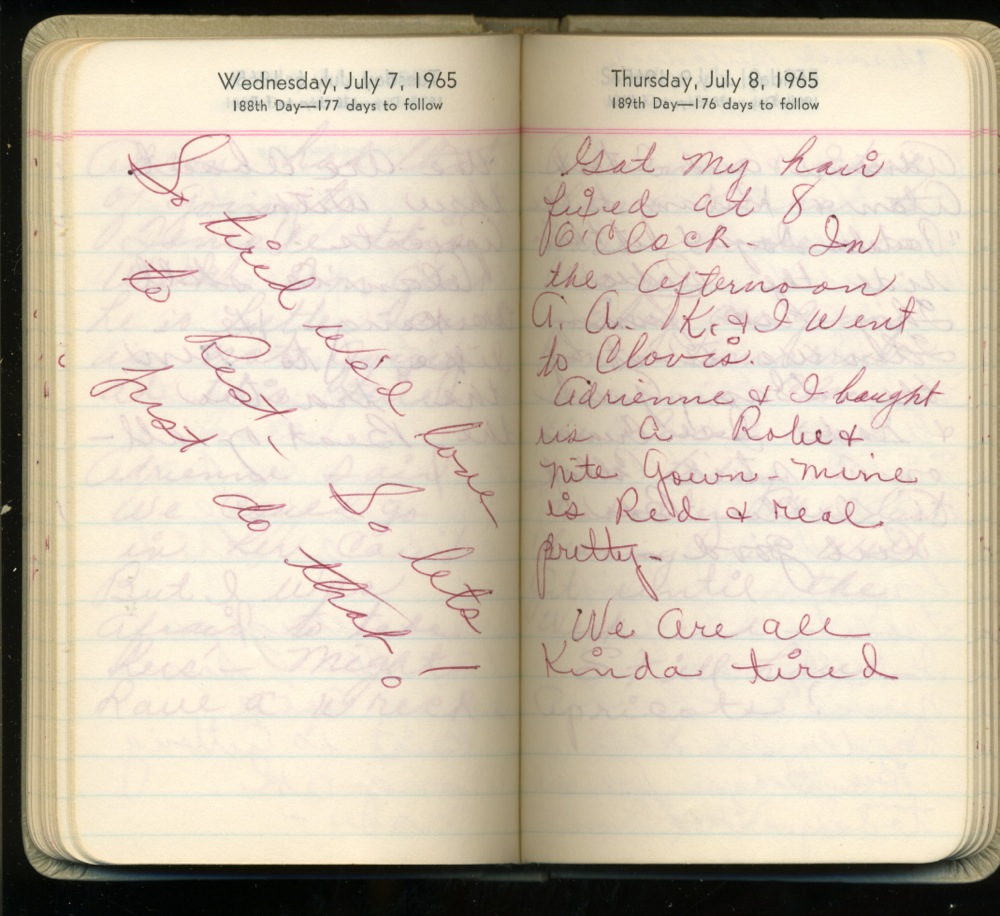 Wednesday, July 7, 1965
188th Day—177 days to follow
So tired we'd love
to Rest - So lets
just do that!
Thursday, July 8, 1965
189th Day—176 days to follow
Got my hair
fixed at 8
O'Clock - In
the Afternoon
A. A. K. & I Went
to Clovis.
Adrienne & I bought
us A Robe &
Nite Gown - mine
is Red & real
pretty -
We Are all
Kinda tired